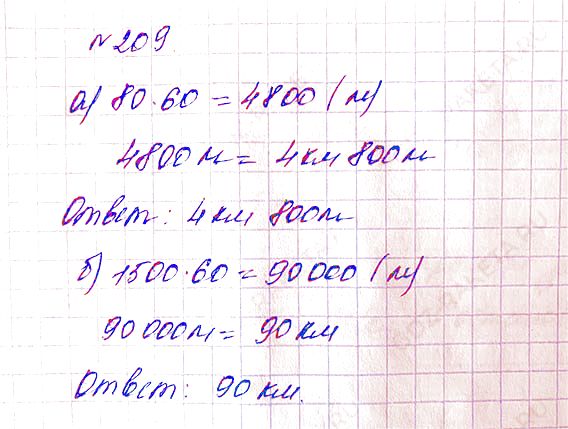 №209.
а) 80·60 = 4800 (м)
4800м = 4км 800м
Ответ: 4км 800м
б) 1500·60 = 90000 (м)
90000м = 90км
Ответ: 90км.